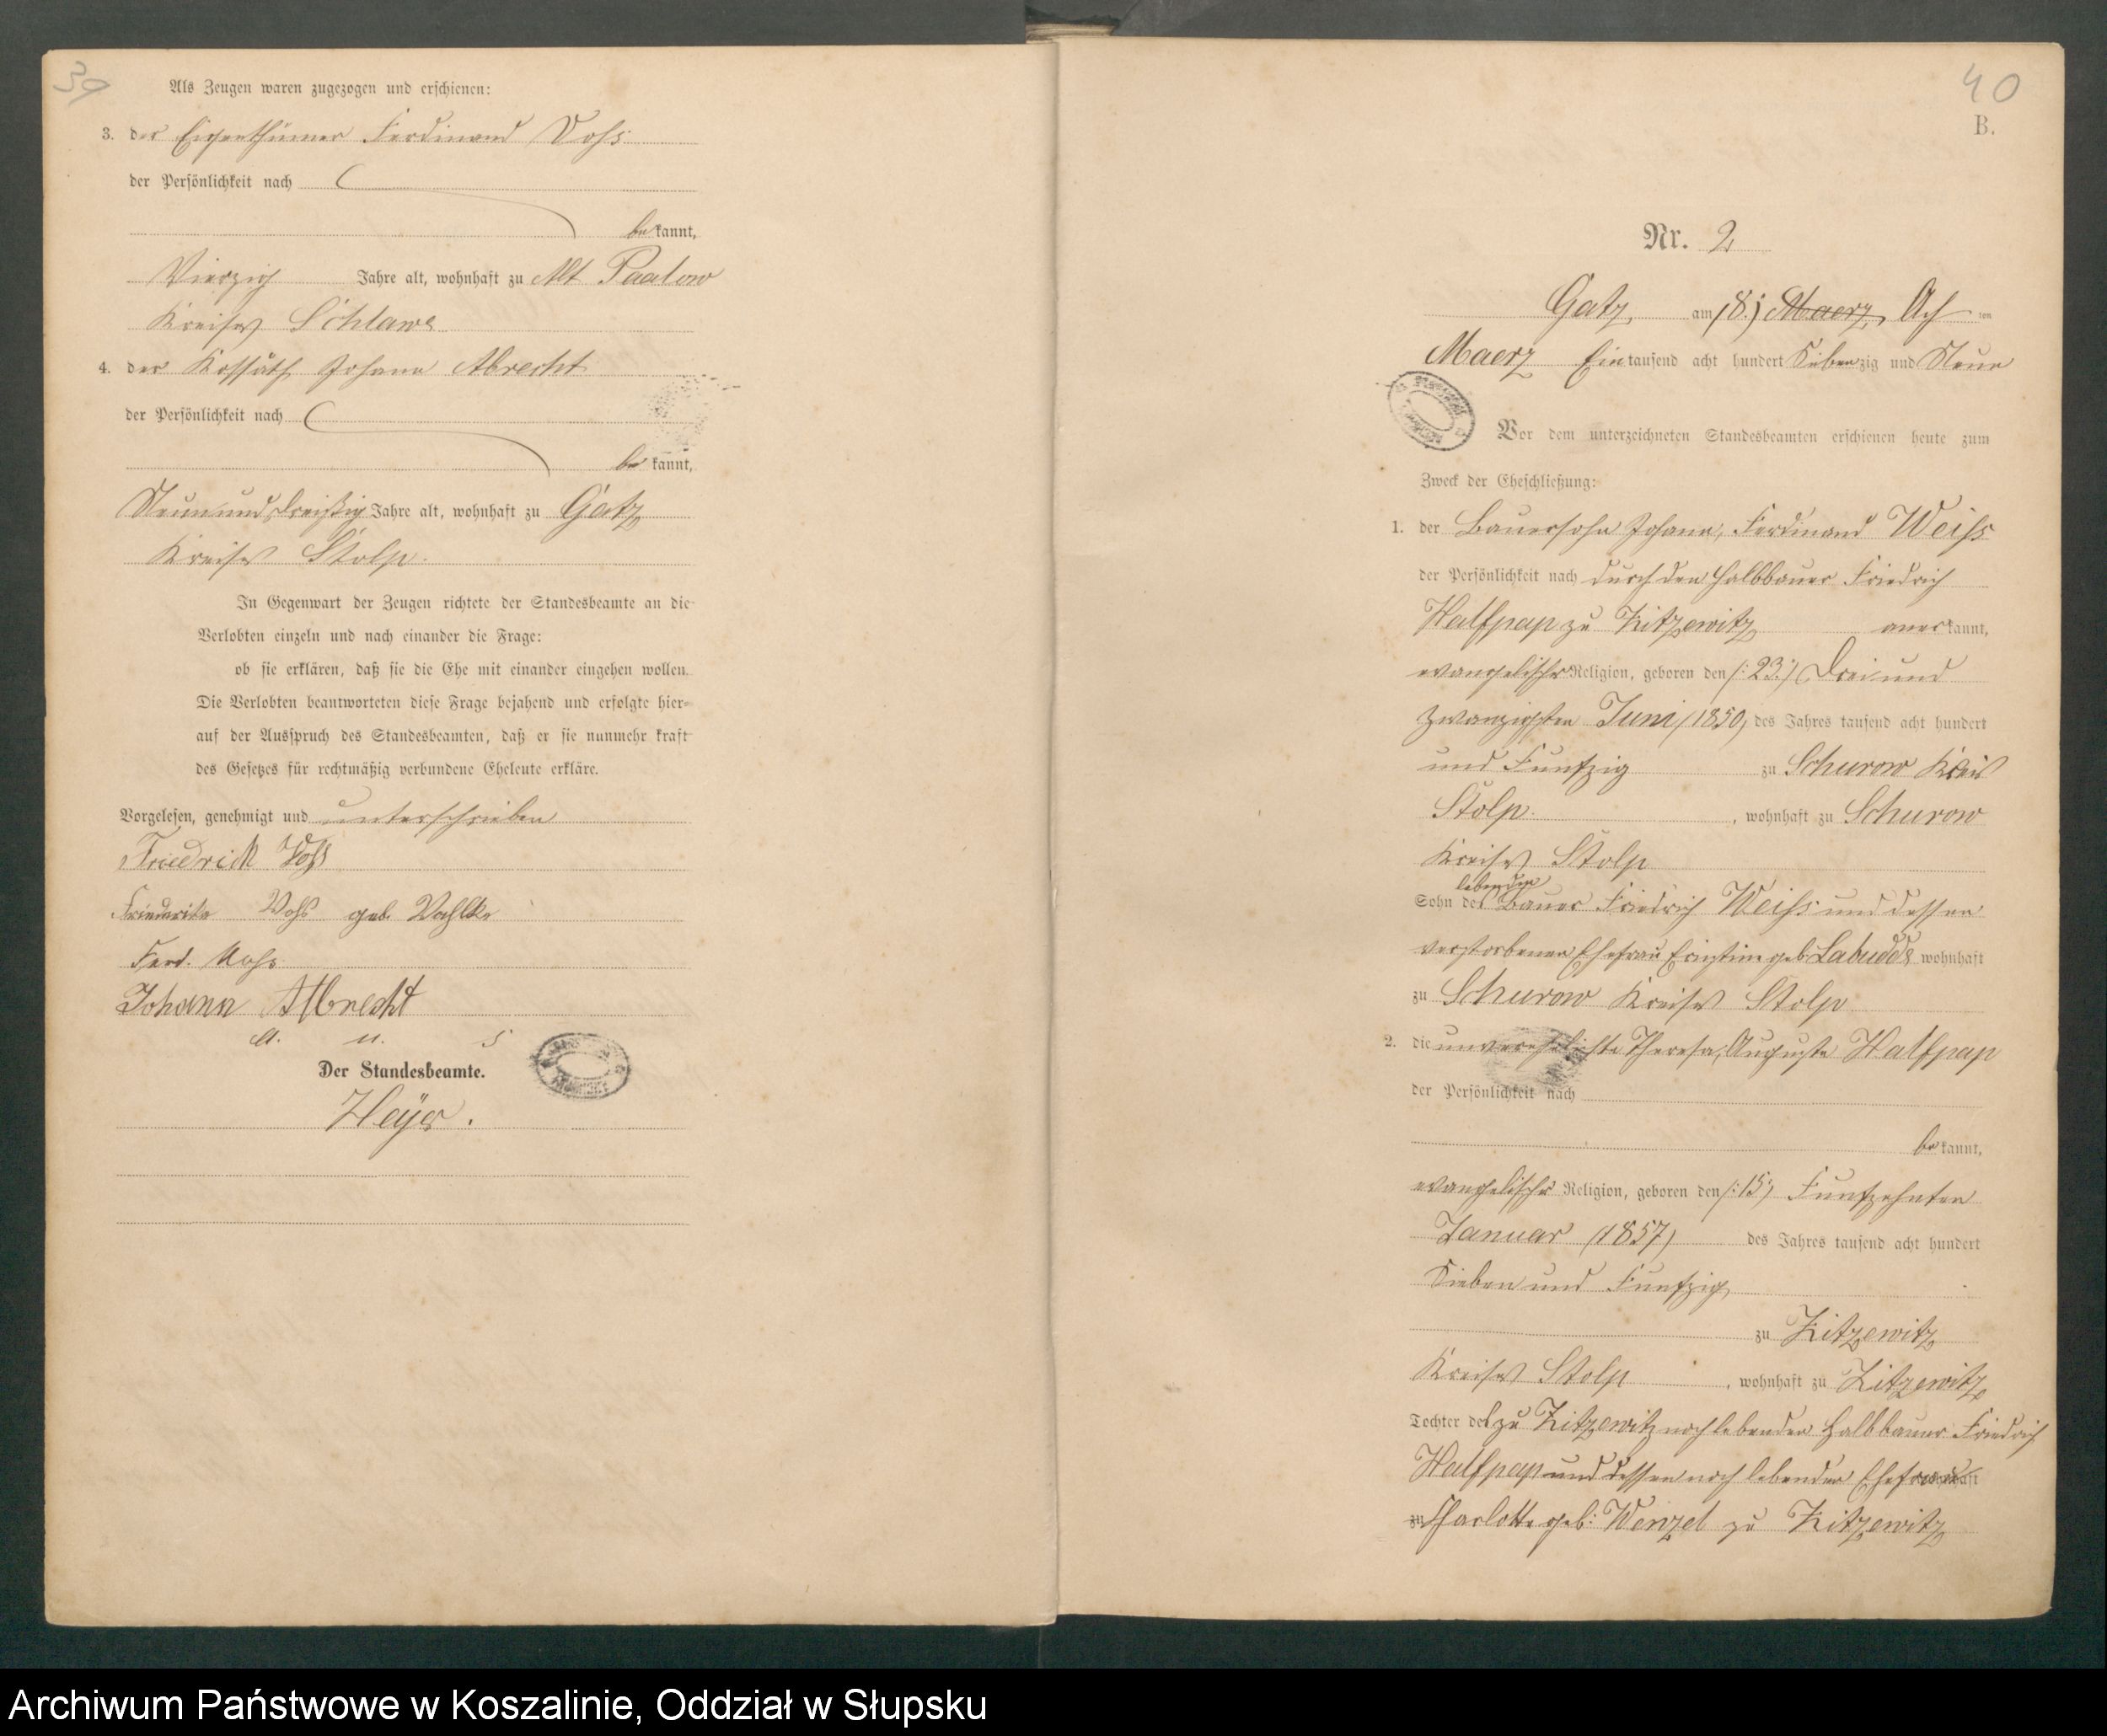 39
Als Zeugen waren zugezogen und erschienen:
3. der Eigenthümer Ferdinand Vohs
der Persönlichkeit nach
bekannt,
Vierzig Jahre alt, wohnhaft zu Alt Paalow
Kreises Schlawe
4. der Kossäth Johann Albrecht
der Persönlichkeit nach
bekannt,
Neununddreißig Jahre alt, wohnhaft zu Gatz
Kreises Stolp.
In Gegenwart der Zeugen richtete der Standesbeamte an die
Verlobten einzeln und nach einander die Frage:
ob sie erklären, daß sie die Ehe mit einander eingehen wollen.
Die Verlobten beantworteten diese Frage bejahend und erfolgte hier-
auf der Ausspruch des Standesbeamten, daß er sie nunmehr kraft
des Gesetzes für rechtmäßig verbundene Eheleute erkläre.
Vorgelesen, genehmigt und unterschrieben
Friedrich Vohs
Friederike Vohs geb. Vahlke
Ferd. Vohs
Johann Albrecht
a. u. s
Der Standesbeamte.
Heÿer.
40
B.
Nr. 2
Gatz, am /8./ Maerz, Ach ten
Maerz Eintausend acht hundert Siebenzig und Neun
Vor dem unterzeichneten Standesbeamten erschienen heute zum
Zweck der Eheschließung:
1. der Bauersohn Johann, Ferdinand Weiss
der Persönlichkeit nach durch den Halbbauer Friedrich
Halfpap zu Zitzewitz anerkannt,
evangelischer Religion, geboren den /:23:/ Drei und
zwanzigsten Juni /1850/ des Jahres tausend acht hundert
und Funfzig zu Schurow Kreis
Stolp. , wohnhaft zu Schurow
Kreises Stolp
lebenden
Sohn des Bauer Friedrich Weiss und dessen
verstorbenen Ehefrau Ernstine geb. Labudde wohnhaft
zu Schurow Kreises Stolp
2. die unverehelichte Theresa, Auguste Halfpap
der Persönlichkeit nach
bekannt,
evangelischer Religion, geboren den /:15:/ Funfzehnten
Januar (1857) des Jahres tausend acht hundert
Sieben und Funfzig
zu Zitzewitz
Kreises Stolp , wohnhaft zu Zitzewitz
Tochter des zu Zitzewitz noch lebenden Halbbauer Friedrich
Halfpap und dessen noch lebenden Ehefrau wohnhaft
zu Charlotte geb: Wenzel zu Zitzewitz
Archiwum Państwowe w Koszalinie, Oddział w Słupsku